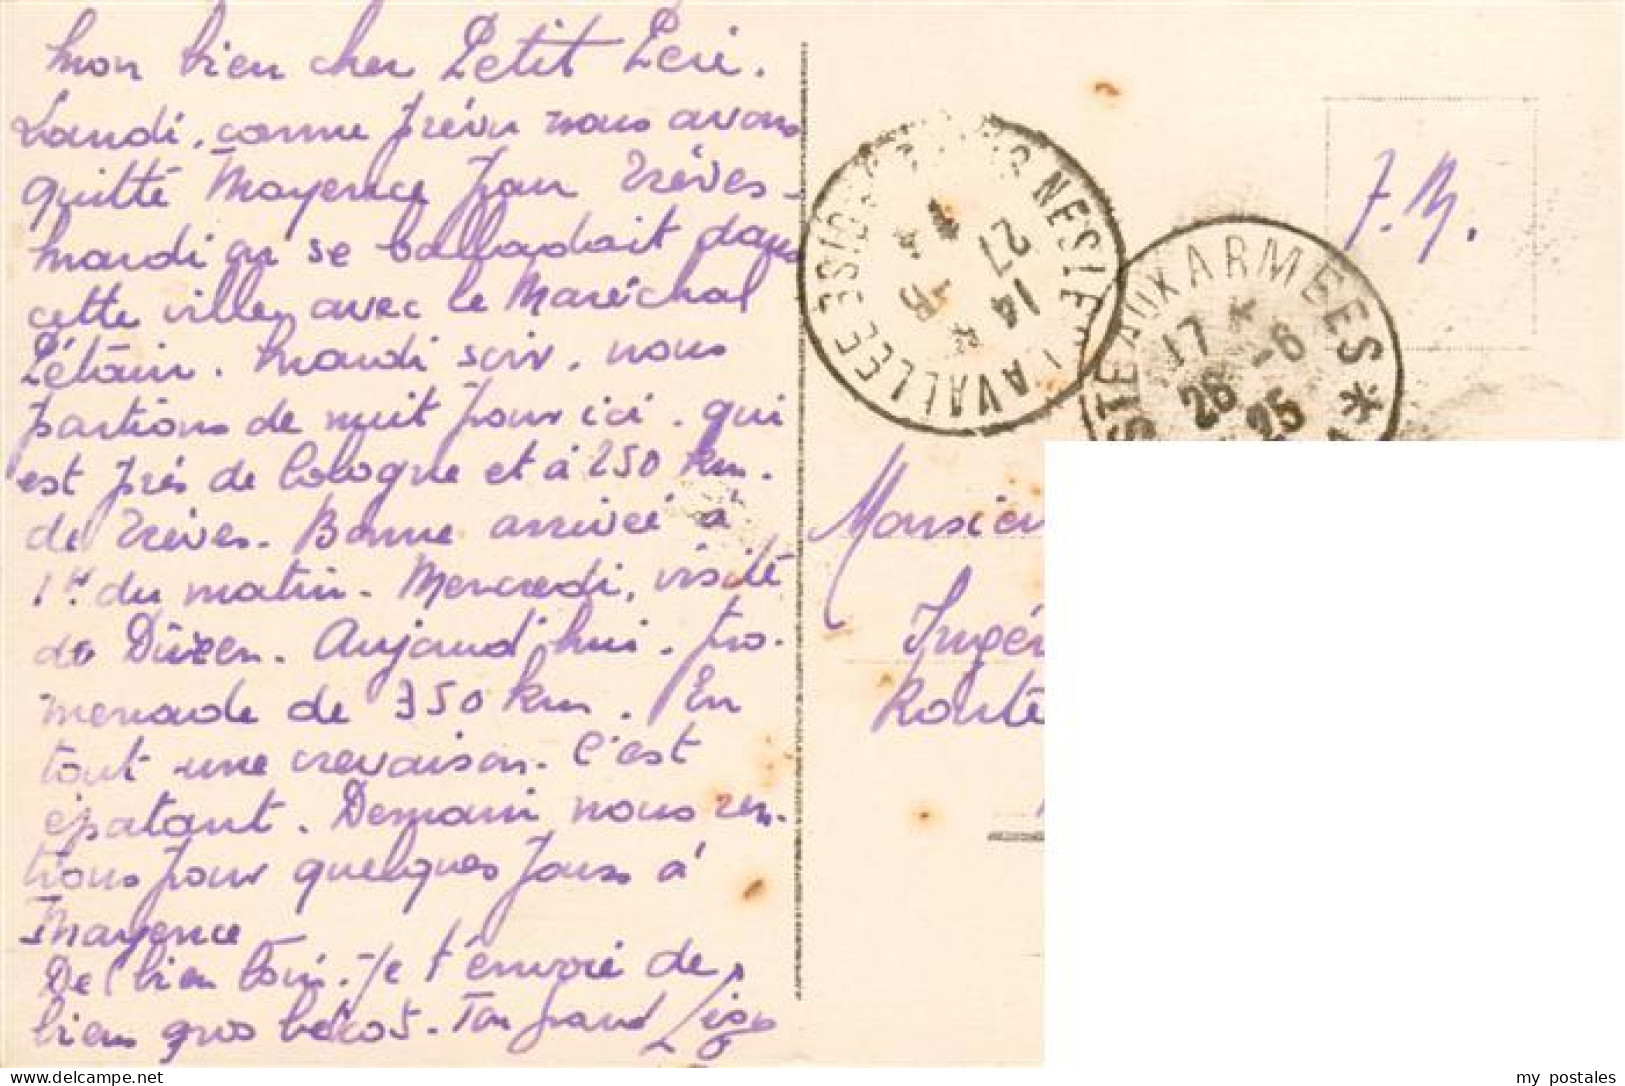 Mon bien cher Petit Péri.
Lundi, comme prévu nous avons
quitté Mayence pour Trèves -
Mardi on se balladait dans
cette ville, avec le Maréchal
Pétain. Mardi soir, nous
partions de nuit pour ici. qui
est près de Cologne et à 250 km.
de Trèves. Bonne arrivée à
1h. du matin. Mercredi, visite
de Düren. Aujourd'hui. pro-
menade de 350 km. En
tout une crevaison. C'est
épatant. Demain nous ren-
trons pour quelques jours à
Mayence
De bien loin. Je t'envoie de
bien gros bécots. Ton grand
F.M.
NESLE LA VALLEE
SEINE ET OISE
14
27
STE AUX ARMEES *
17 * -6
26 25
Monsieu
Ingén
Route
my postales